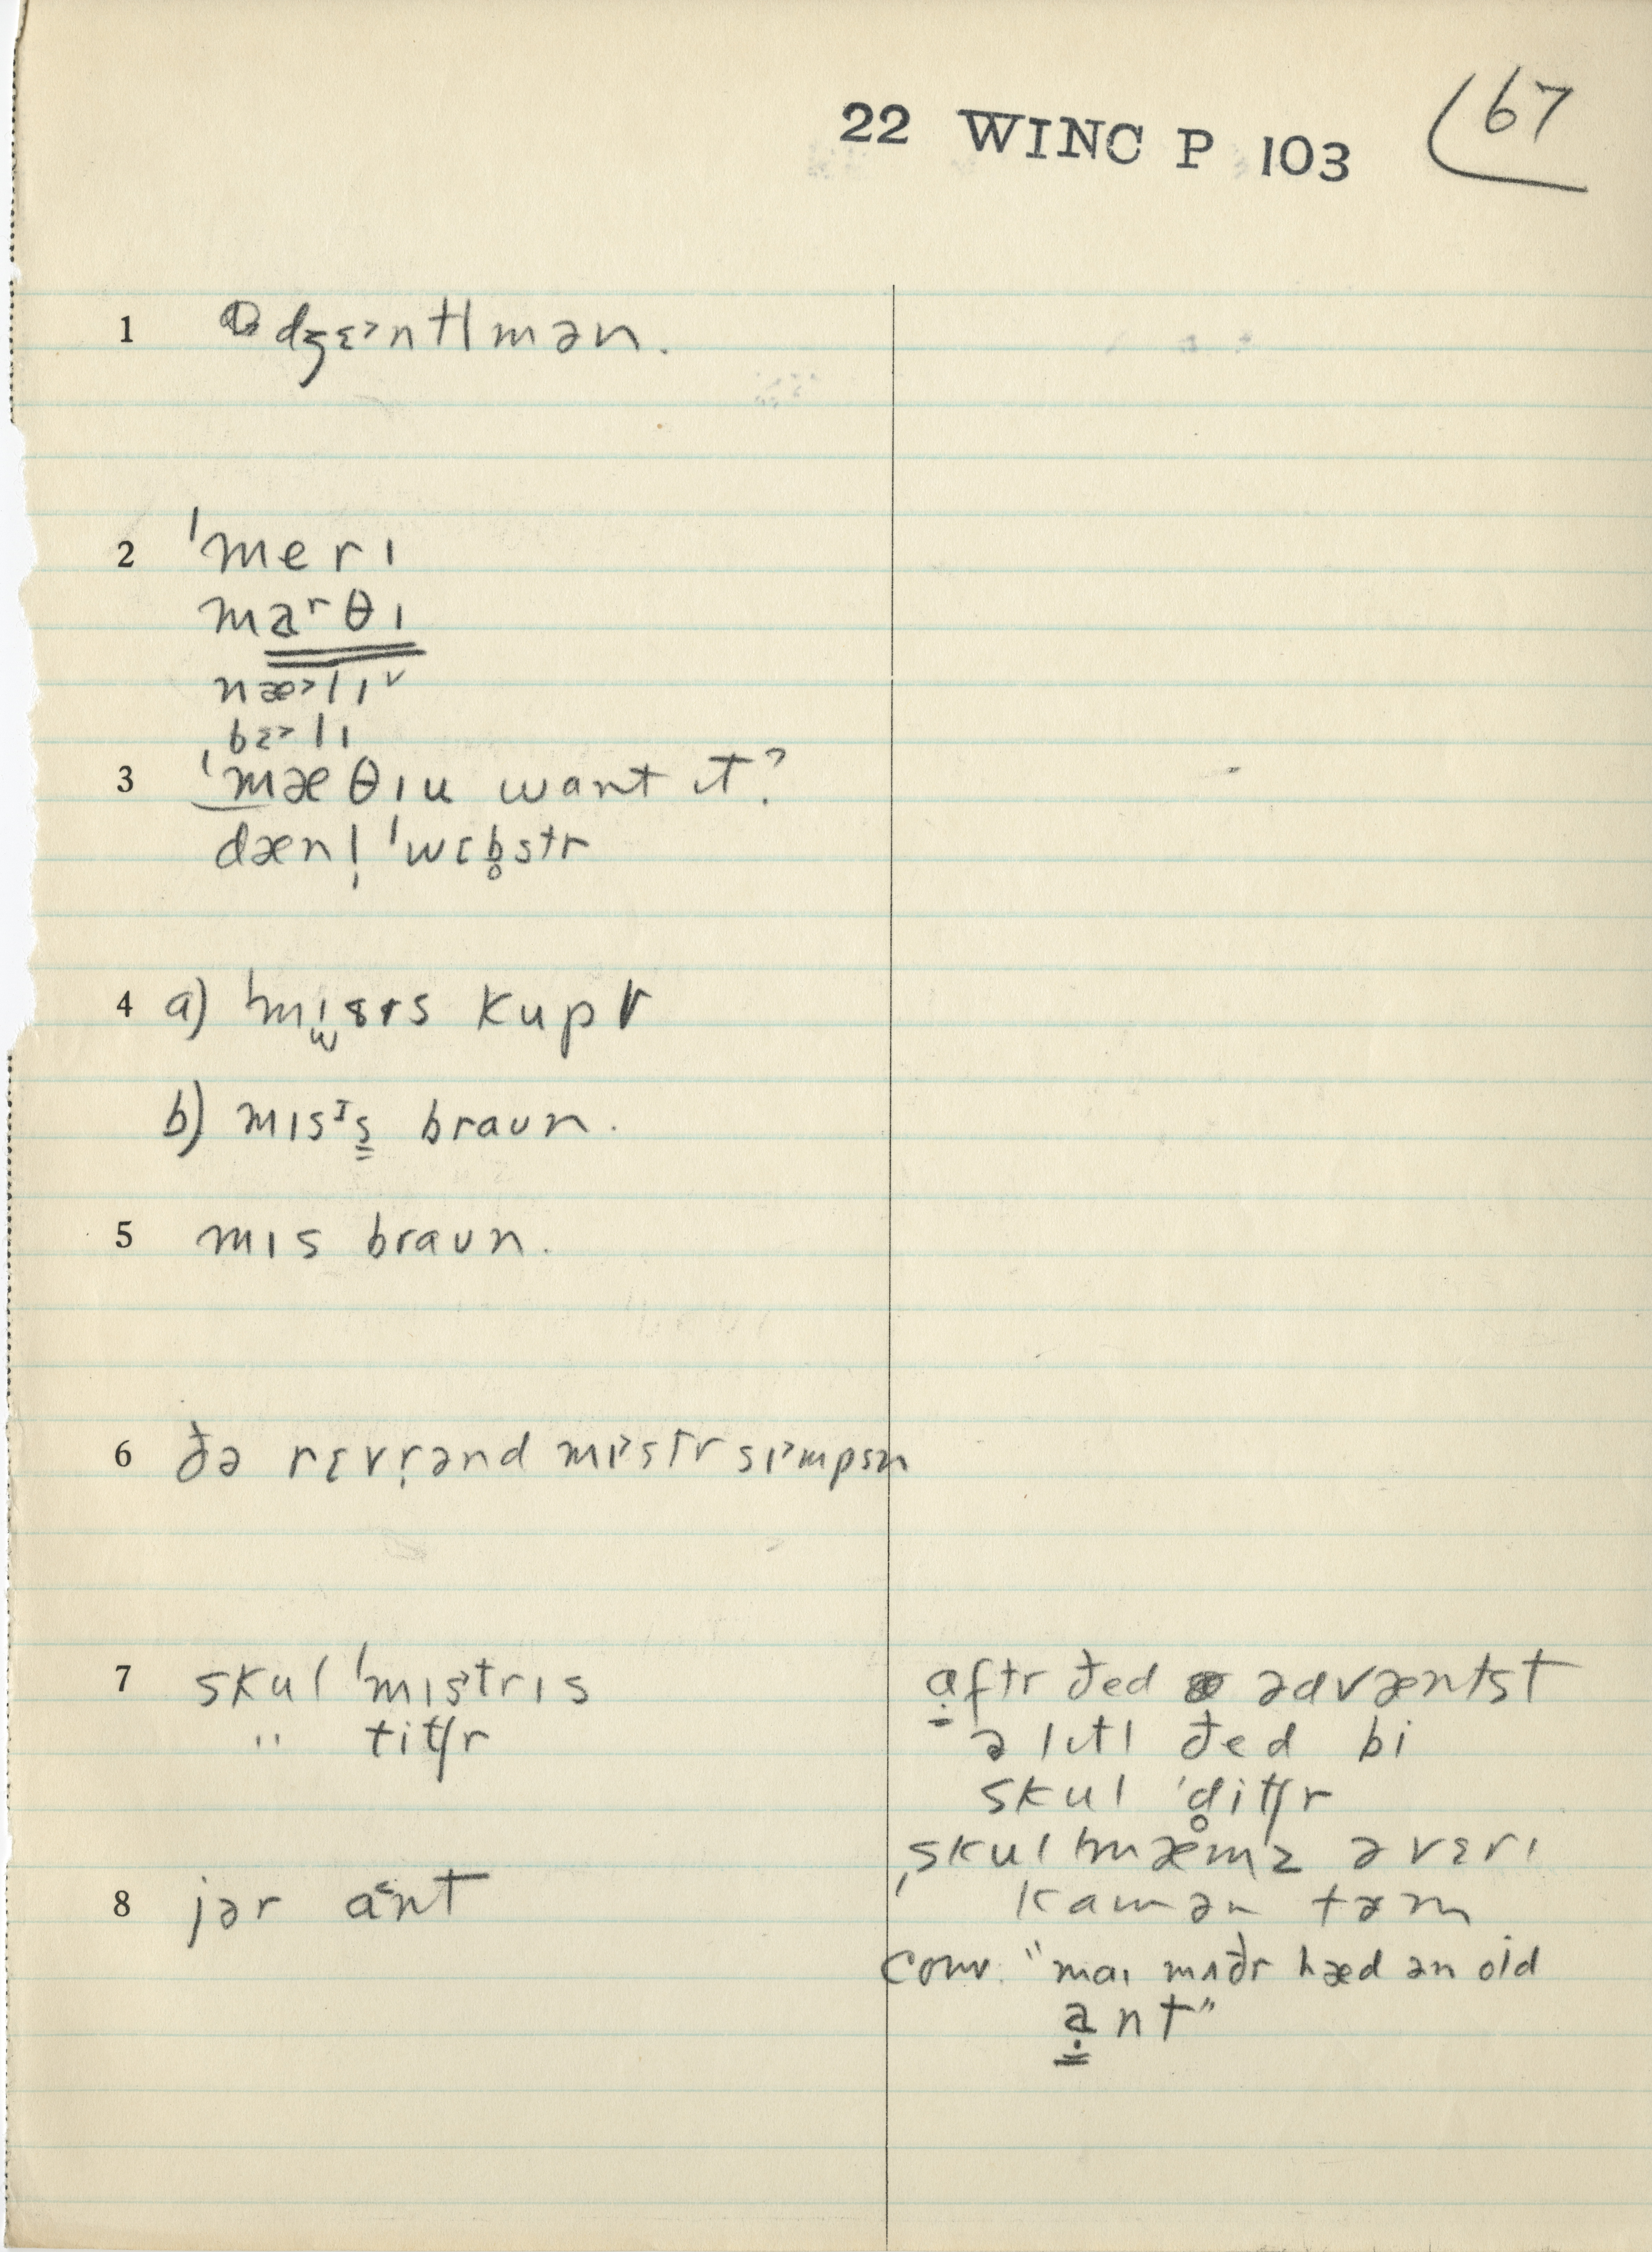 22 WINC P 103
67
1 ə dʒɛ˃ntlmən.
2 ˈmerɪ
marθɪ
næ˃lɪ˅
bɛ˃lɪ
3 ˈmæθɪu want ɪt?
dænl̩ ˈwɛb̥str
4 a) ˈmɪsɪs kupr
b) mɪsɪs braʊn.
5 mɪs braʊn.
6 ðə rɛvr̩ənd mɪ˃str sɪ˃mpsn
7 skul ˈmɪstrɪs
" titʃr
aftr ðed ədvæntst
ə lɪtl ðed bi
skul ˈd̥itʃr
ˌskul ˈmæmz ə vɛrɪ
kamən tɜm
8 jər a˂nt
conv. "maɪ mʌðr hæd ən old
ant"